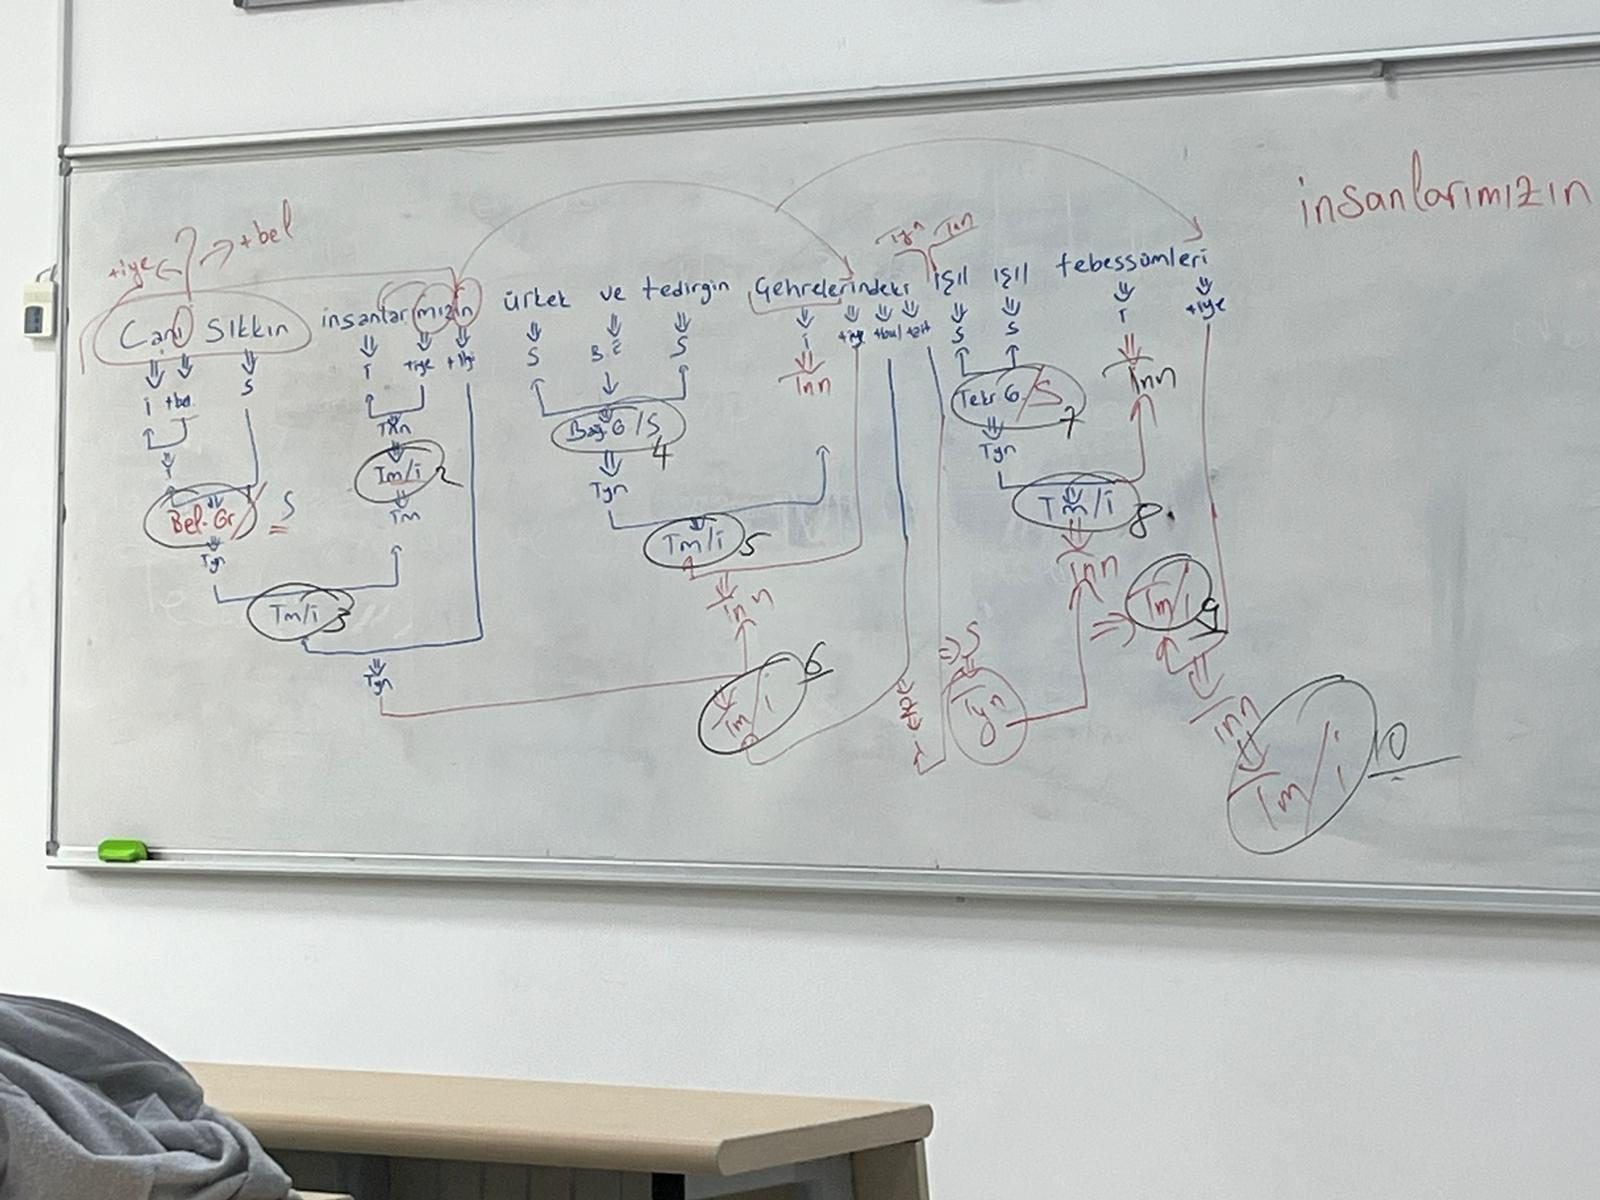 insanlarımızın
+iye ? → +bel
Tyn Tnn
Canı Sıkkın insanlarımızın ürkek ve tedirgin Çehrelerindeki ışıl ışıl tebessümleri
i +bel S i +iye +ilgi S B.E S i +iye +bul +ait S S i +iye
i Tnn Tnn
Tekr G./S 7 Tnn
Bağ G/S 4
Tyn
Im/i 2
Tyn
Bel. Gr / S Tm Tm/i 8
Tyn Tm/i 5
Tnn
Tm/i 3 Tnn Tm/i 9
Tyn Tm/i 6 S
Tyn Tnn
Tm/i 10